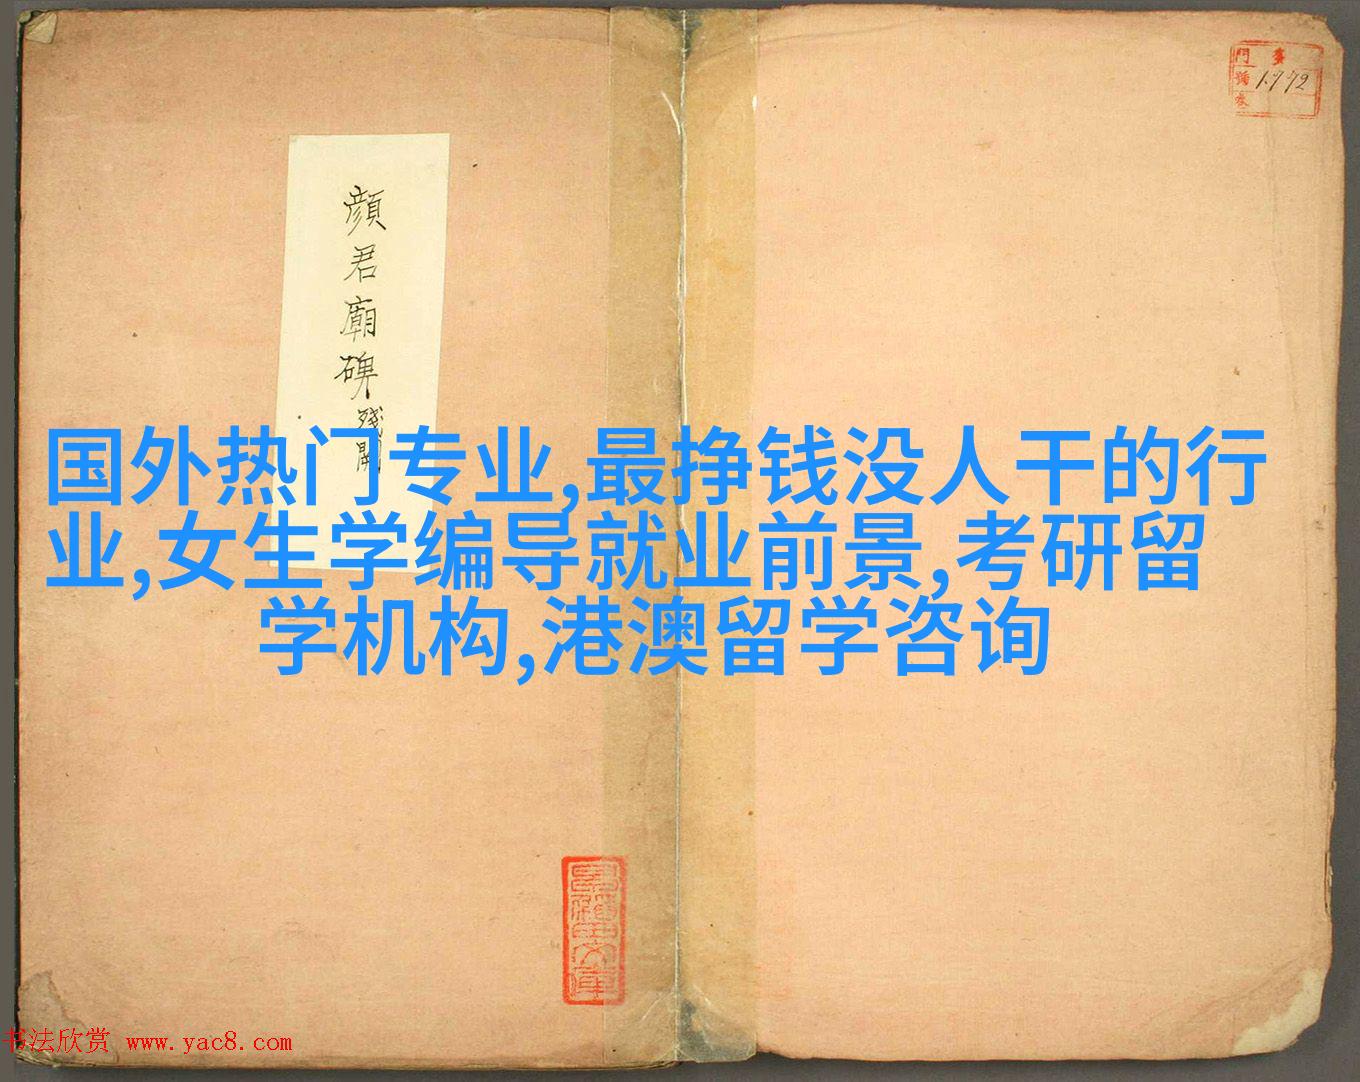 門 
號 1772
卷
顏君廟碑殘闕
国外热门专业,最挣钱没人干的行
业,女生学编导就业前景,考研留
学机构,港澳留学咨询
书法欣赏 www.yac8.com